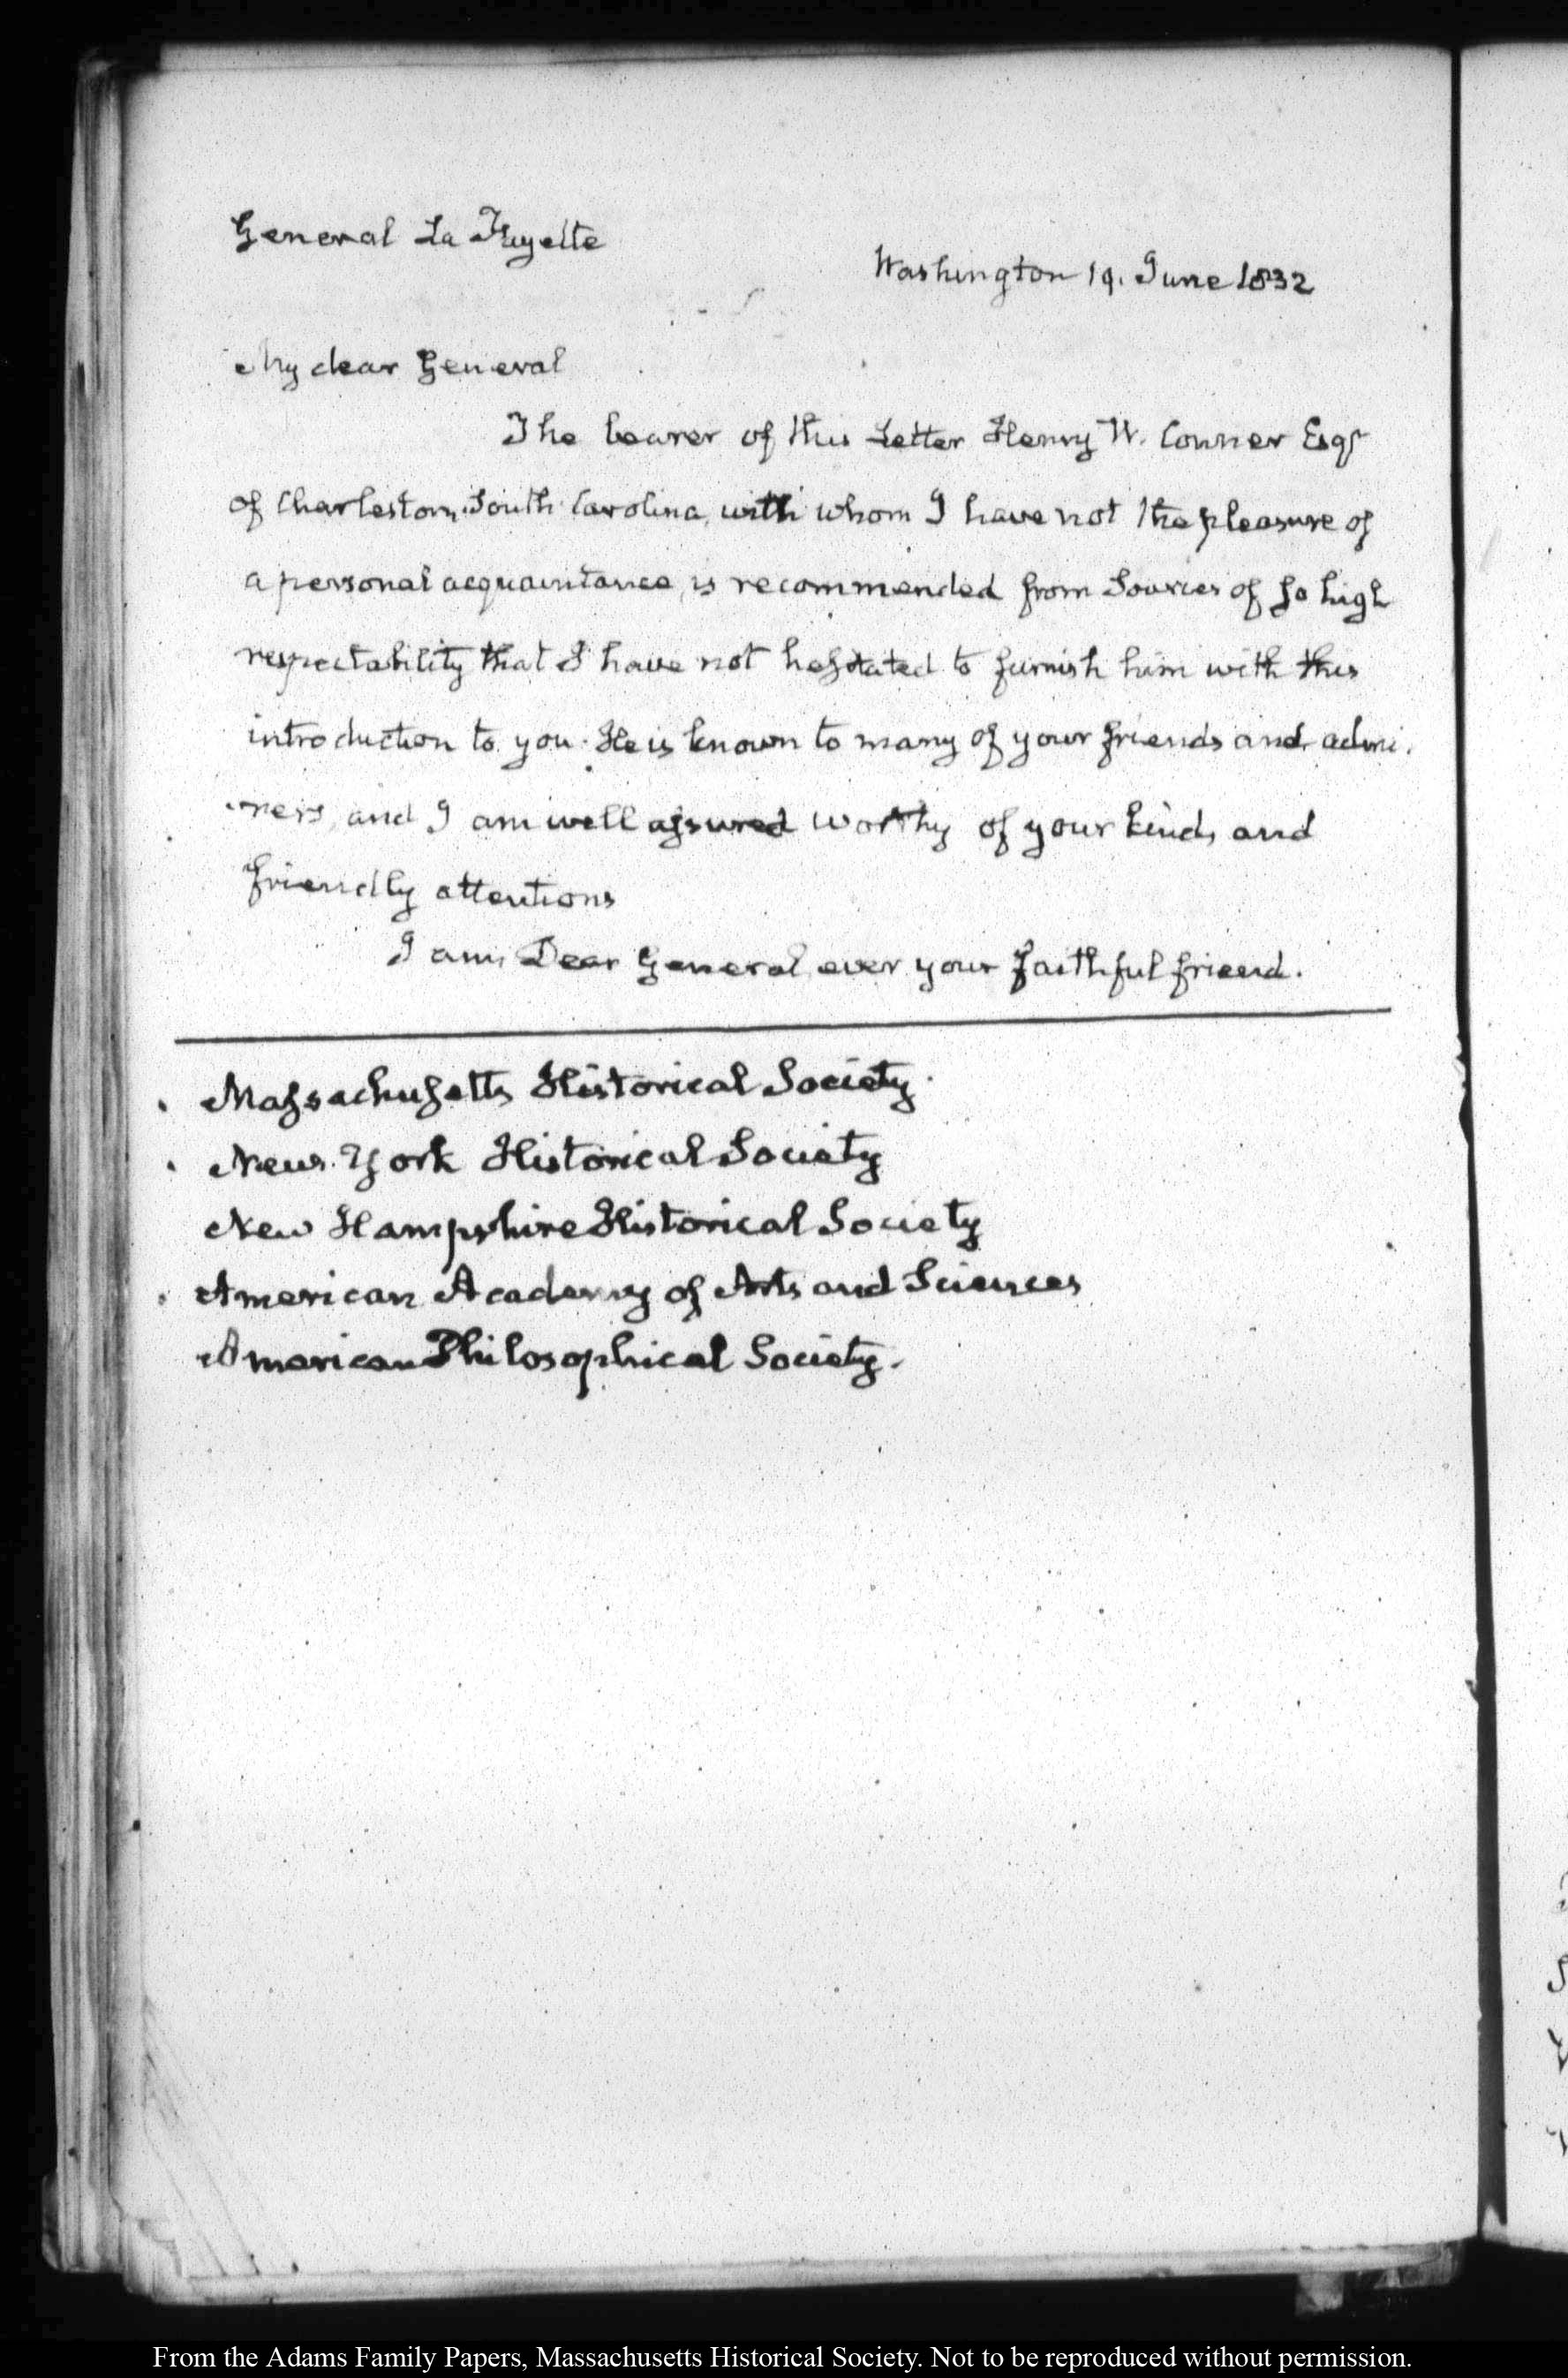 General La Fayette
Washington 19. June 1832
My dear General
The bearer of this Letter Henry W. Conner Esqr
of Charleston, South Carolina, with whom I have not the pleasure of
a personal acquaintance, is recommended from Sources of so high
respectability that I have not hesitated to furnish him with this
introduction to you. He is known to many of your friends and admi-
-rers, and I am well assured worthy of your kind, and
friendly attentions
I am, Dear General, ever your faithful friend.
Massachusetts Historical Society.
New-York Historical Society
New Hampshire Historical Society
American Academy of Arts and Sciences
American Philosophical Society.
From the Adams Family Papers, Massachusetts Historical Society. Not to be reproduced without permission.